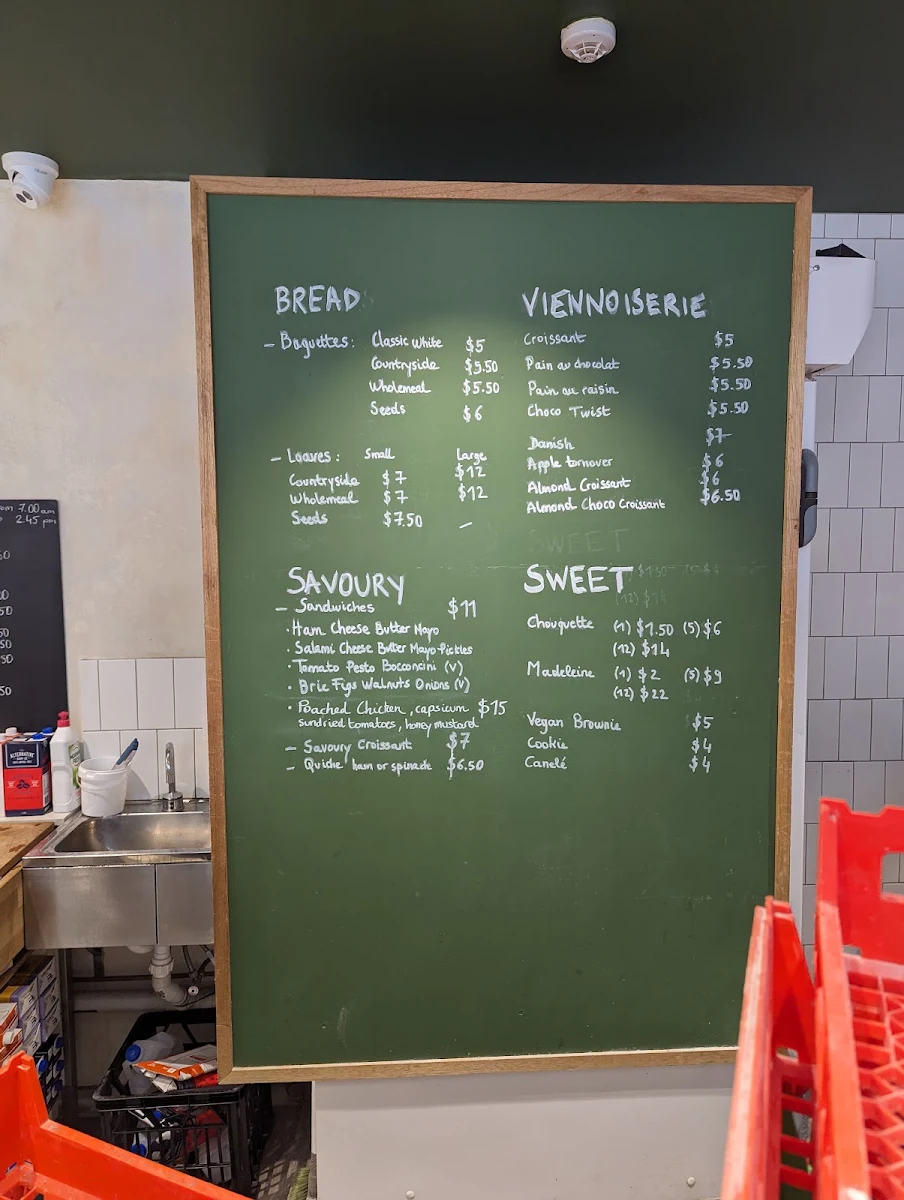 BREAD
- Baguettes: Classic White $5
Countryside $5.50
Wholemeal $5.50
Seeds $6
- Loaves: Small Large
Countryside $7 $12
Wholemeal $7 $12
Seeds $7.50 -
SAVOURY
- Sandwiches $11
· Ham Cheese Butter Mayo
· Salami Cheese Butter Mayo Pickles
· Tomato Pesto Bocconcini (V)
· Brie Figs Walnuts Onions (V)
· Poached Chicken, capsicum $15
sundried tomatoes, honey mustard
- Savoury Croissant $7
- Quiche ham or spinach $6.50
VIENNOISERIE
Croissant $5
Pain au chocolat $5.50
Pain au raisin $5.50
Choco Twist $5.50
Danish $7
Apple turnover $6
Almond Croissant $6
Almond Choco Croissant $6.50
SWEET
SWEET
Chouquette (1) $1.50 (5) $6
(12) $14
Madeleine (1) $2 (5) $9
(12) $22
Vegan Brownie $5
Cookie $4
Canelé $4
7.00 am
2.45 pm